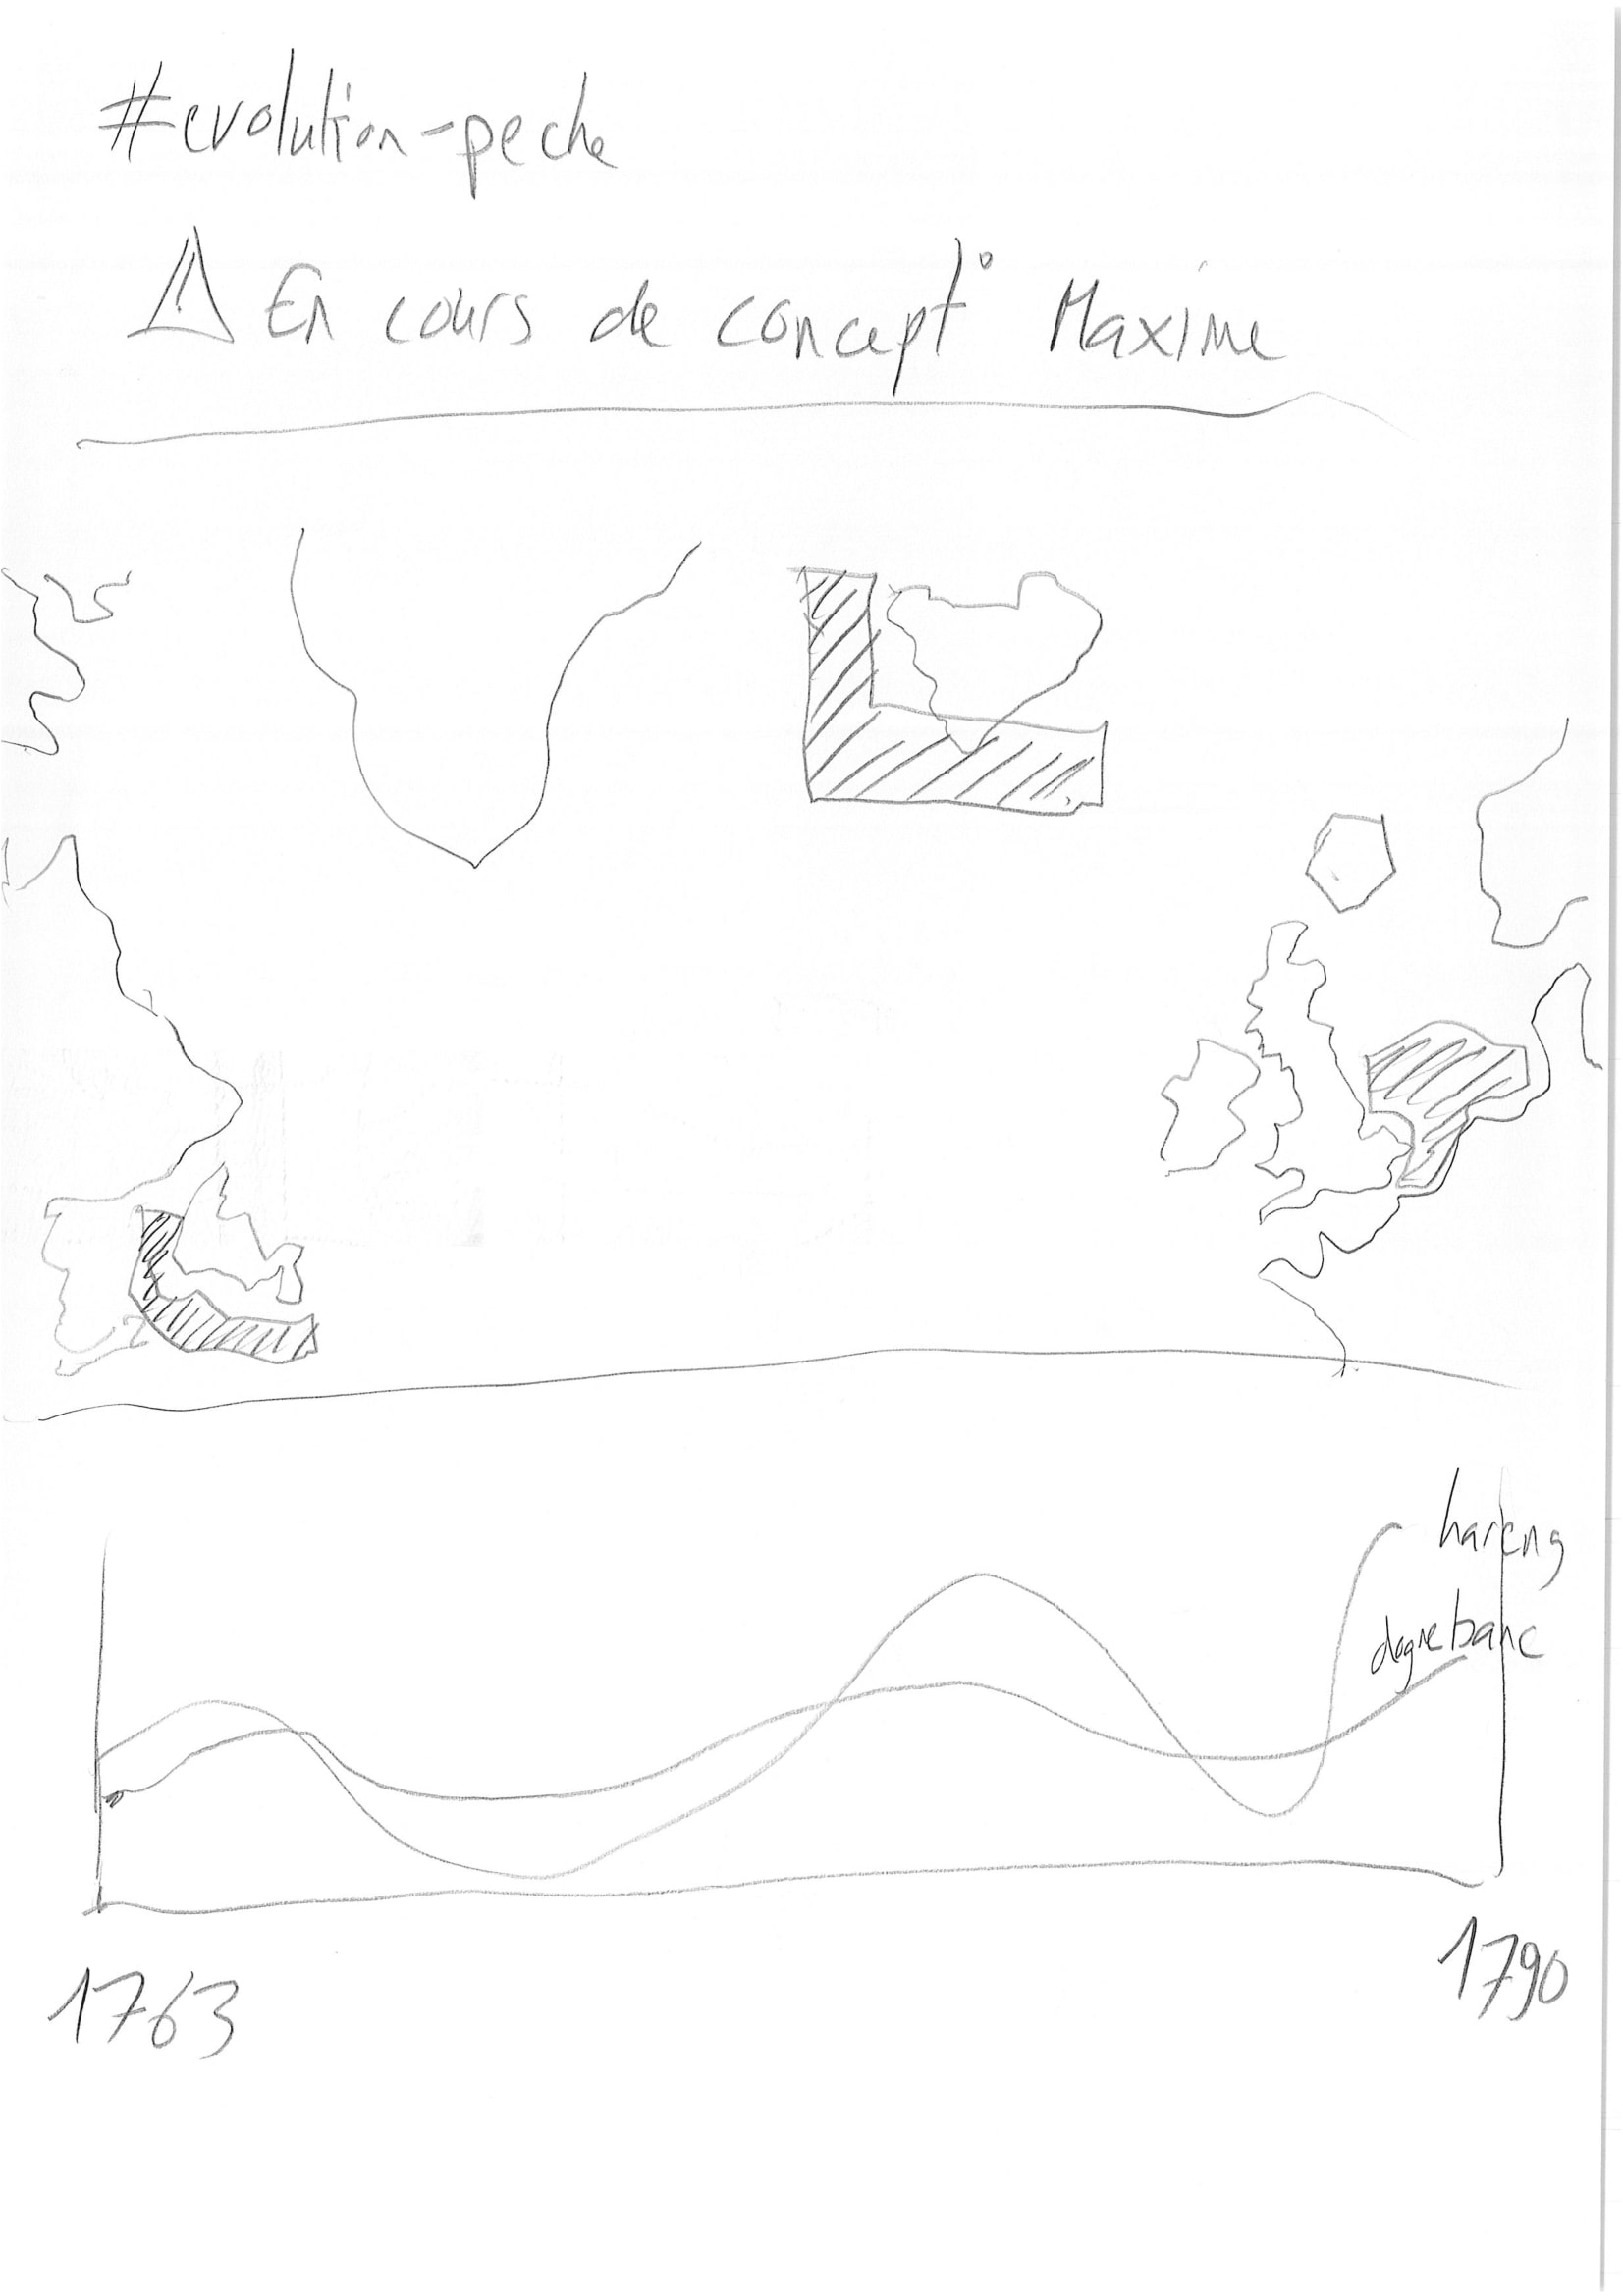 #evolution-peche
⚠ En cours de concept° Maxime
hareng
dogrebanc
1763
1790